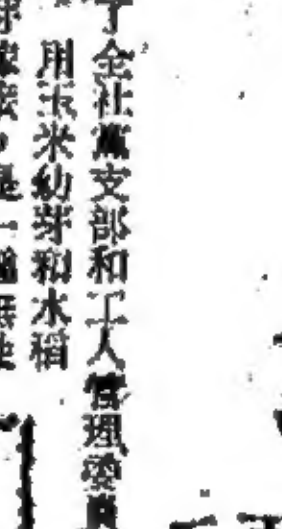 了全社黨支部和工人管理委員
用玉米幼芽和水稻
是一種無性